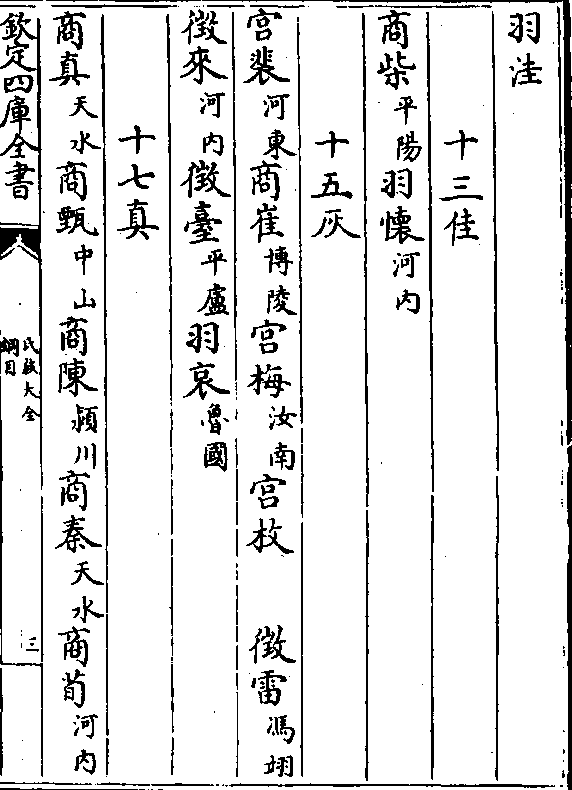 羽洼
十三佳
商柴平陽羽懷河内
十五灰
宫裴河東商崔博陵宫梅汝南宫枚 徴雷馮翊
徴來河内徴臺平盧羽哀魯國
十七真
商真天水商甄中山商陳潁川商秦天水商荀河内
欽定四庫全書
氏族大全
綱目
三